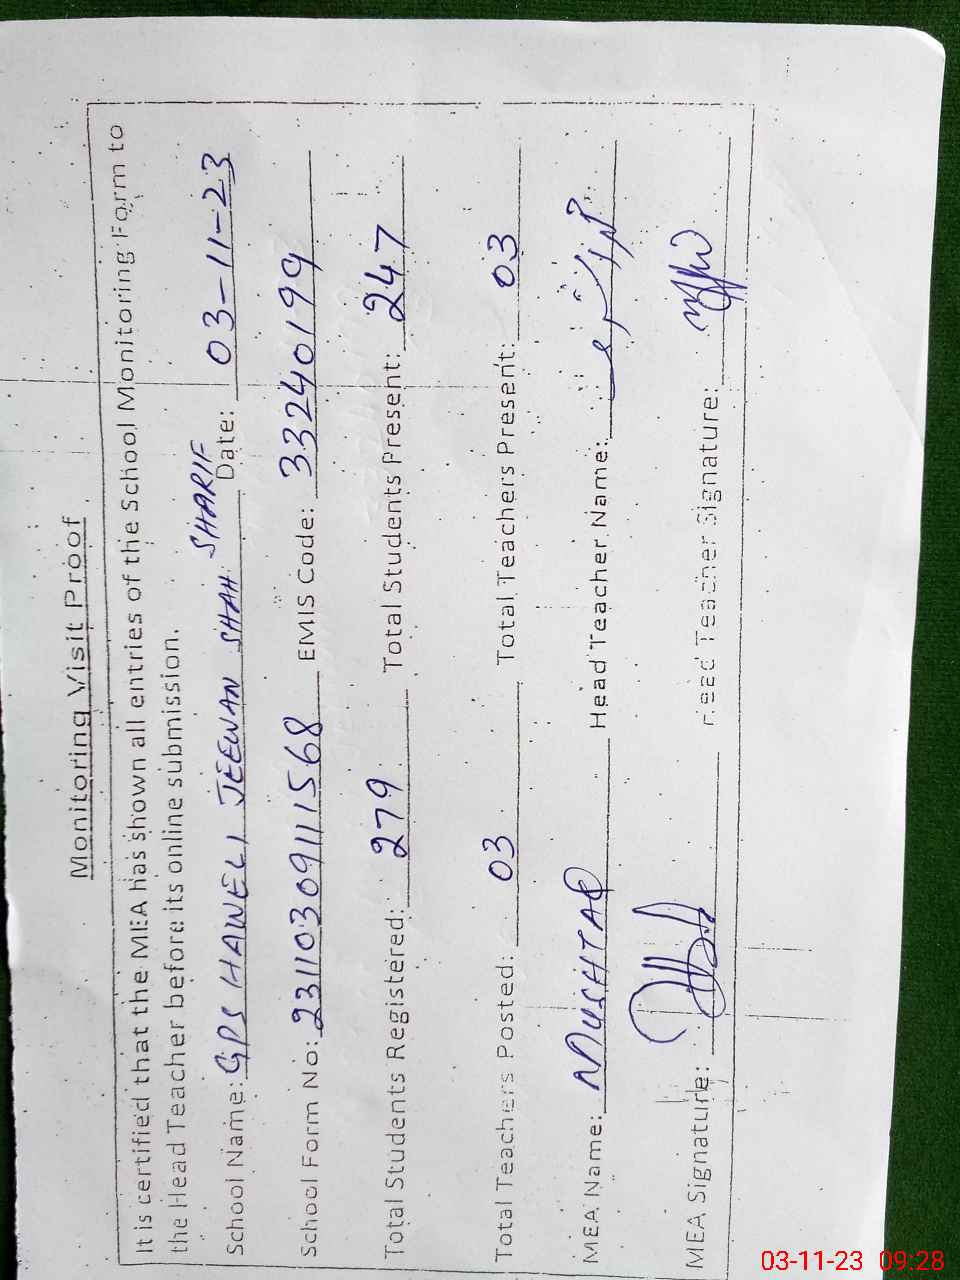 Monitoring Visit Proof
It is certified that the MEA has shown all entries of the School Monitoring Form to
the Head Teacher before its online submission.
School Name: GPS HAWELI JEEWAN SHAH SHARIF Date: 03-11-23
School Form No: 23110309111568 EMIS Code: 33240199
Total Students Registered: 279 Total Students Present: 247
Total Teachers Posted: 03 Total Teachers Present: 03
MEA Name: MUSHTAQ Head Teacher Name:
MEA Signature: Head Teacher Signature:
03-11-23 09:28